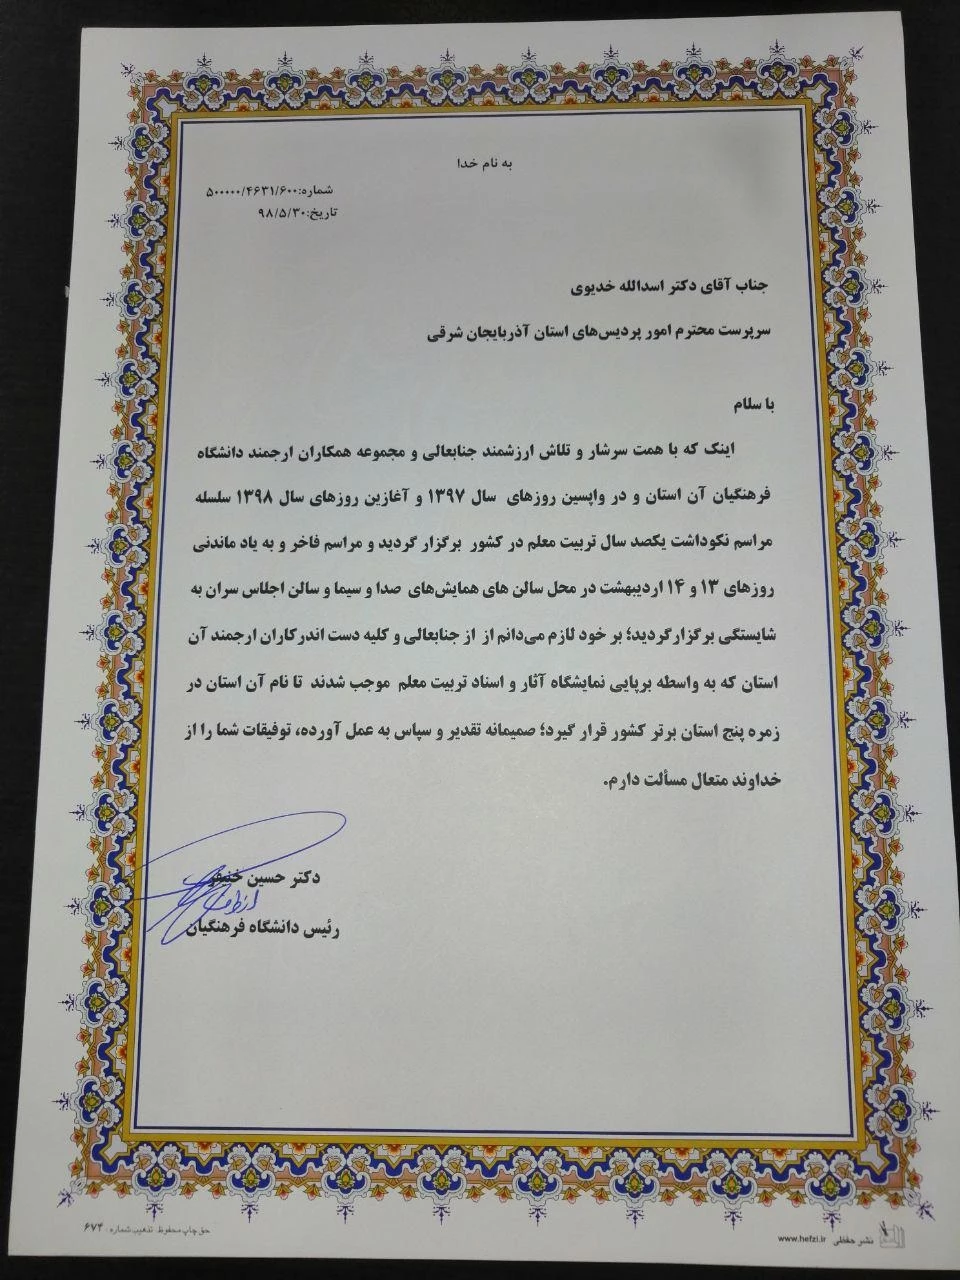 به نام خدا
شماره:۵۰۰۰۰۰/۴۶۳۱/۶۰۰
تاریخ:۹۸/۵/۳۰
جناب آقای دکتر اسدالله خدیوی
سرپرست محترم امور پردیس‌های استان آذربایجان شرقی
با سلام
اینک که با همت سرشار و تلاش ارزشمند جنابعالی و مجموعه همکاران ارجمند دانشگاه
فرهنگیان آن استان و در واپسین روزهای سال ۱۳۹۷ و آغازین روزهای سال ۱۳۹۸ سلسله
مراسم نکوداشت یکصد سال تربیت معلم در کشور برگزار گردید و مراسم فاخر و به یاد ماندنی
روزهای ۱۳ و ۱۴ اردیبهشت در محل سالن های همایش‌های صدا و سیما و سالن اجلاس سران به
شایستگی برگزار گردید؛ بر خود لازم می‌دانم از از جنابعالی و کلیه دست اندرکاران ارجمند آن
استان که به واسطه برپایی نمایشگاه آثار و اسناد تربیت معلم موجب شدند تا نام آن استان در
زمره پنج استان برتر کشور قرار گیرد؛ صمیمانه تقدیر و سپاس به عمل آورده، توفیقات شما را از
خداوند متعال مسألت دارم.
دکتر حسین خنیفر
رئیس دانشگاه فرهنگیان
حق چاپ محفوظ تذهیب شماره: ۶۷۴
نشر حفظی www.hefzi.ir